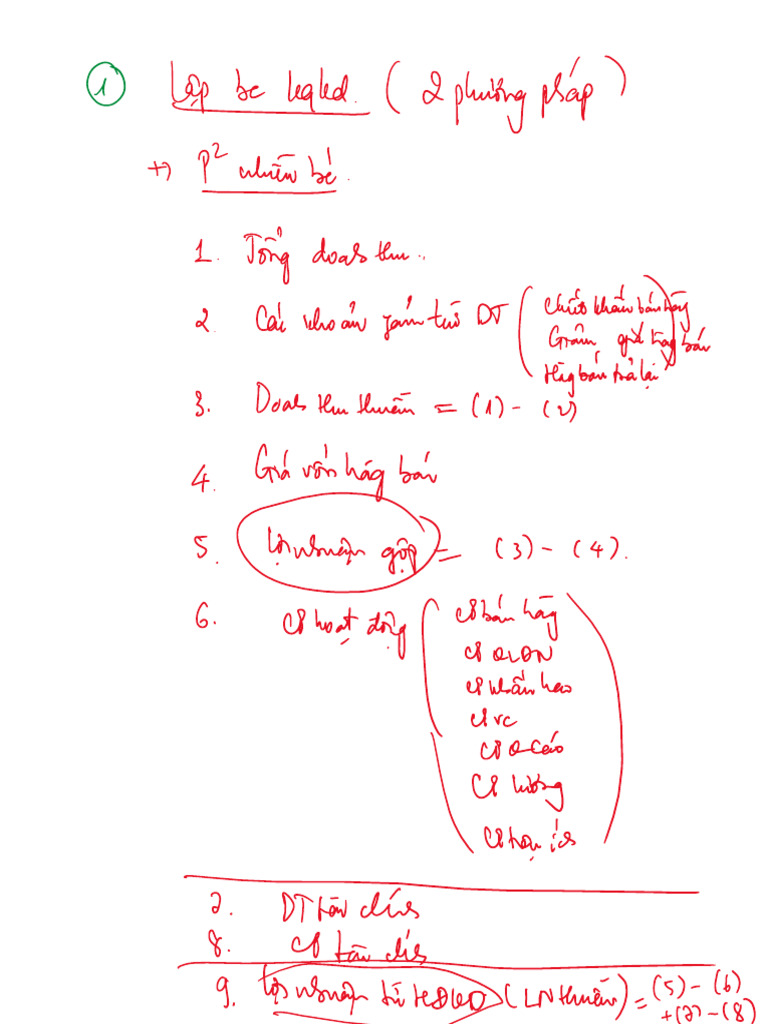 ① Lập bc kqkd. ( 2 phương pháp )
+) P² nhiều bé.
1. Tổng doanh thu..
2. Các khoản giảm trừ DT ( Chiết khấu bán hàng
Giảm giá hàng bán
Hàng bán trả lại )
3. Doanh thu thuần = (1) - (2)
4. Giá vốn hàng bán
5. Lợi nhuận gộp = (3) - (4).
6. CP hoạt động ( CP bán hàng
CP QLDN
CP khấu hao
CP vc
CP Q cáo
CP lương
CP tiện ích )
7. DT tài chính
8. CP tài chính
9. Lợi nhuận từ HĐKD (LN thuần) = (5) - (6)
+(7) - (8)